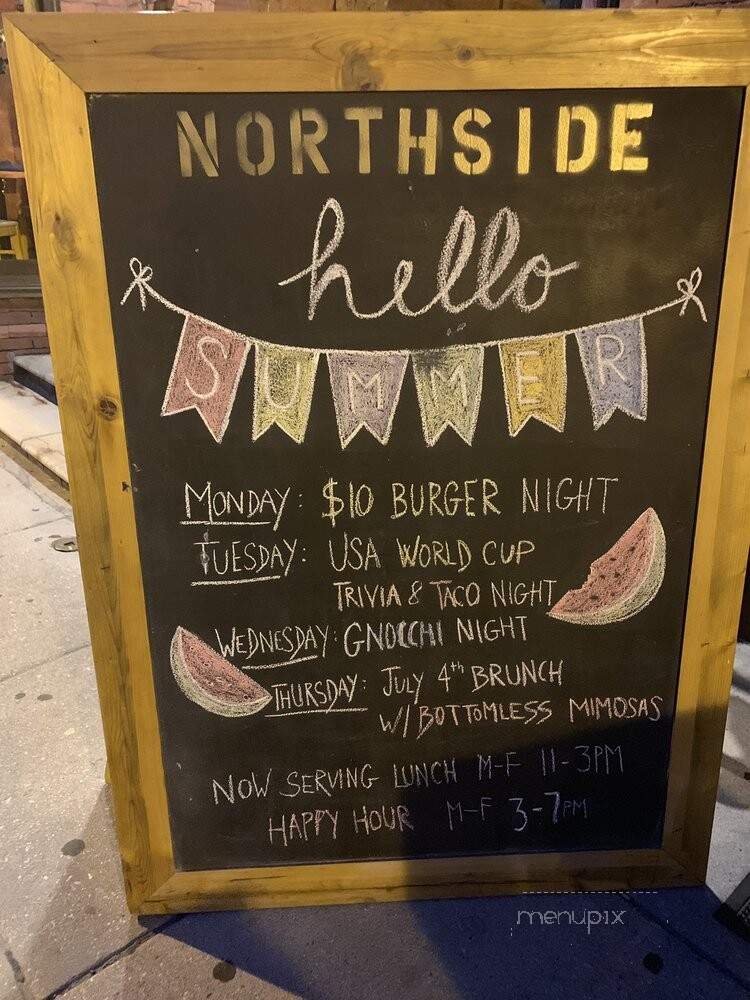 NORTHSIDE
hello
SUMMER
MONDAY: $10 BURGER NIGHT
TUESDAY: USA WORLD CUP
TRIVIA & TACO NIGHT
WEDNESDAY: GNOCCHI NIGHT
THURSDAY: JULY 4th BRUNCH
W/ BOTTOMLESS MIMOSAS
NOW SERVING LUNCH M-F 11-3PM
HAPPY HOUR M-F 3-7PM
menupix